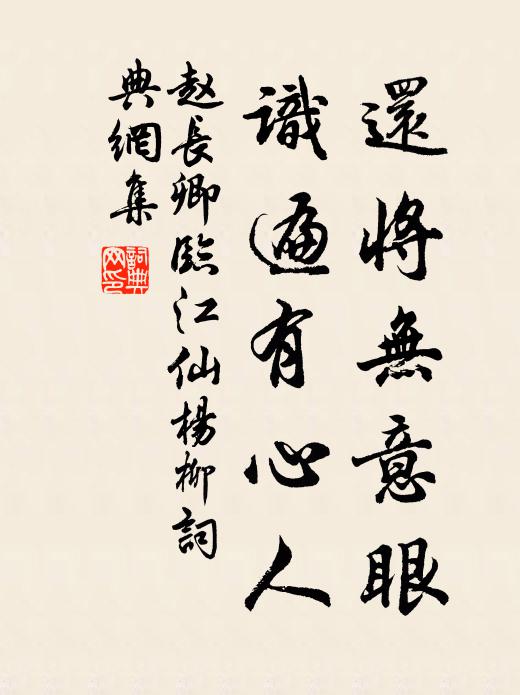 還將無意眼
識遍有心人
赵長卿臨江仙楊柳詞
典網集
詞典
網印